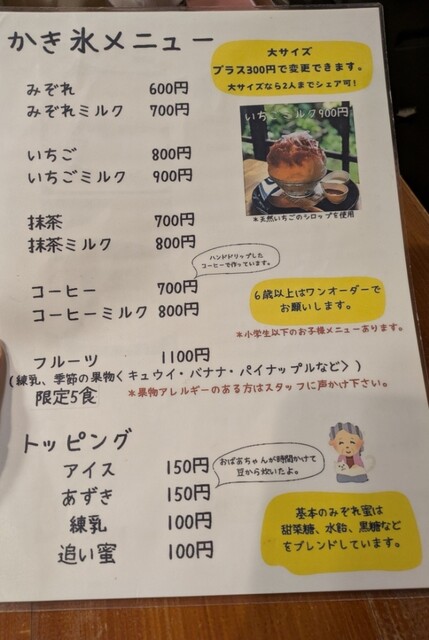 かき氷メニュー
大サイズ
プラス300円で変更できます。
大サイズなら2人までシェア可!
みぞれ 600円
みぞれミルク 700円
いちごミルク900円
いちご 800円
いちごミルク 900円
*天然いちごのシロップを使用
抹茶 700円
抹茶ミルク 800円
ハンドドリップした
コーヒーで作っています。
コーヒー 700円
コーヒーミルク 800円
6歳以上はワンオーダーで
お願いします。
*小学生以下のお子様メニューあります。
フルーツ 1100円
(練乳、季節の果物くキュウイ・バナナ・パイナップルなど〉)
限定5食 *果物アレルギーのある方はスタッフに声かけ下さい。
トッピング
アイス 150円
おばあちゃんが時間かけて
豆から炊いたよ。
あずき 150円
練乳 100円
追い蜜 100円
基本のみぞれ蜜は
甜菜糖、水飴、黒糖など
をブレンドしています。